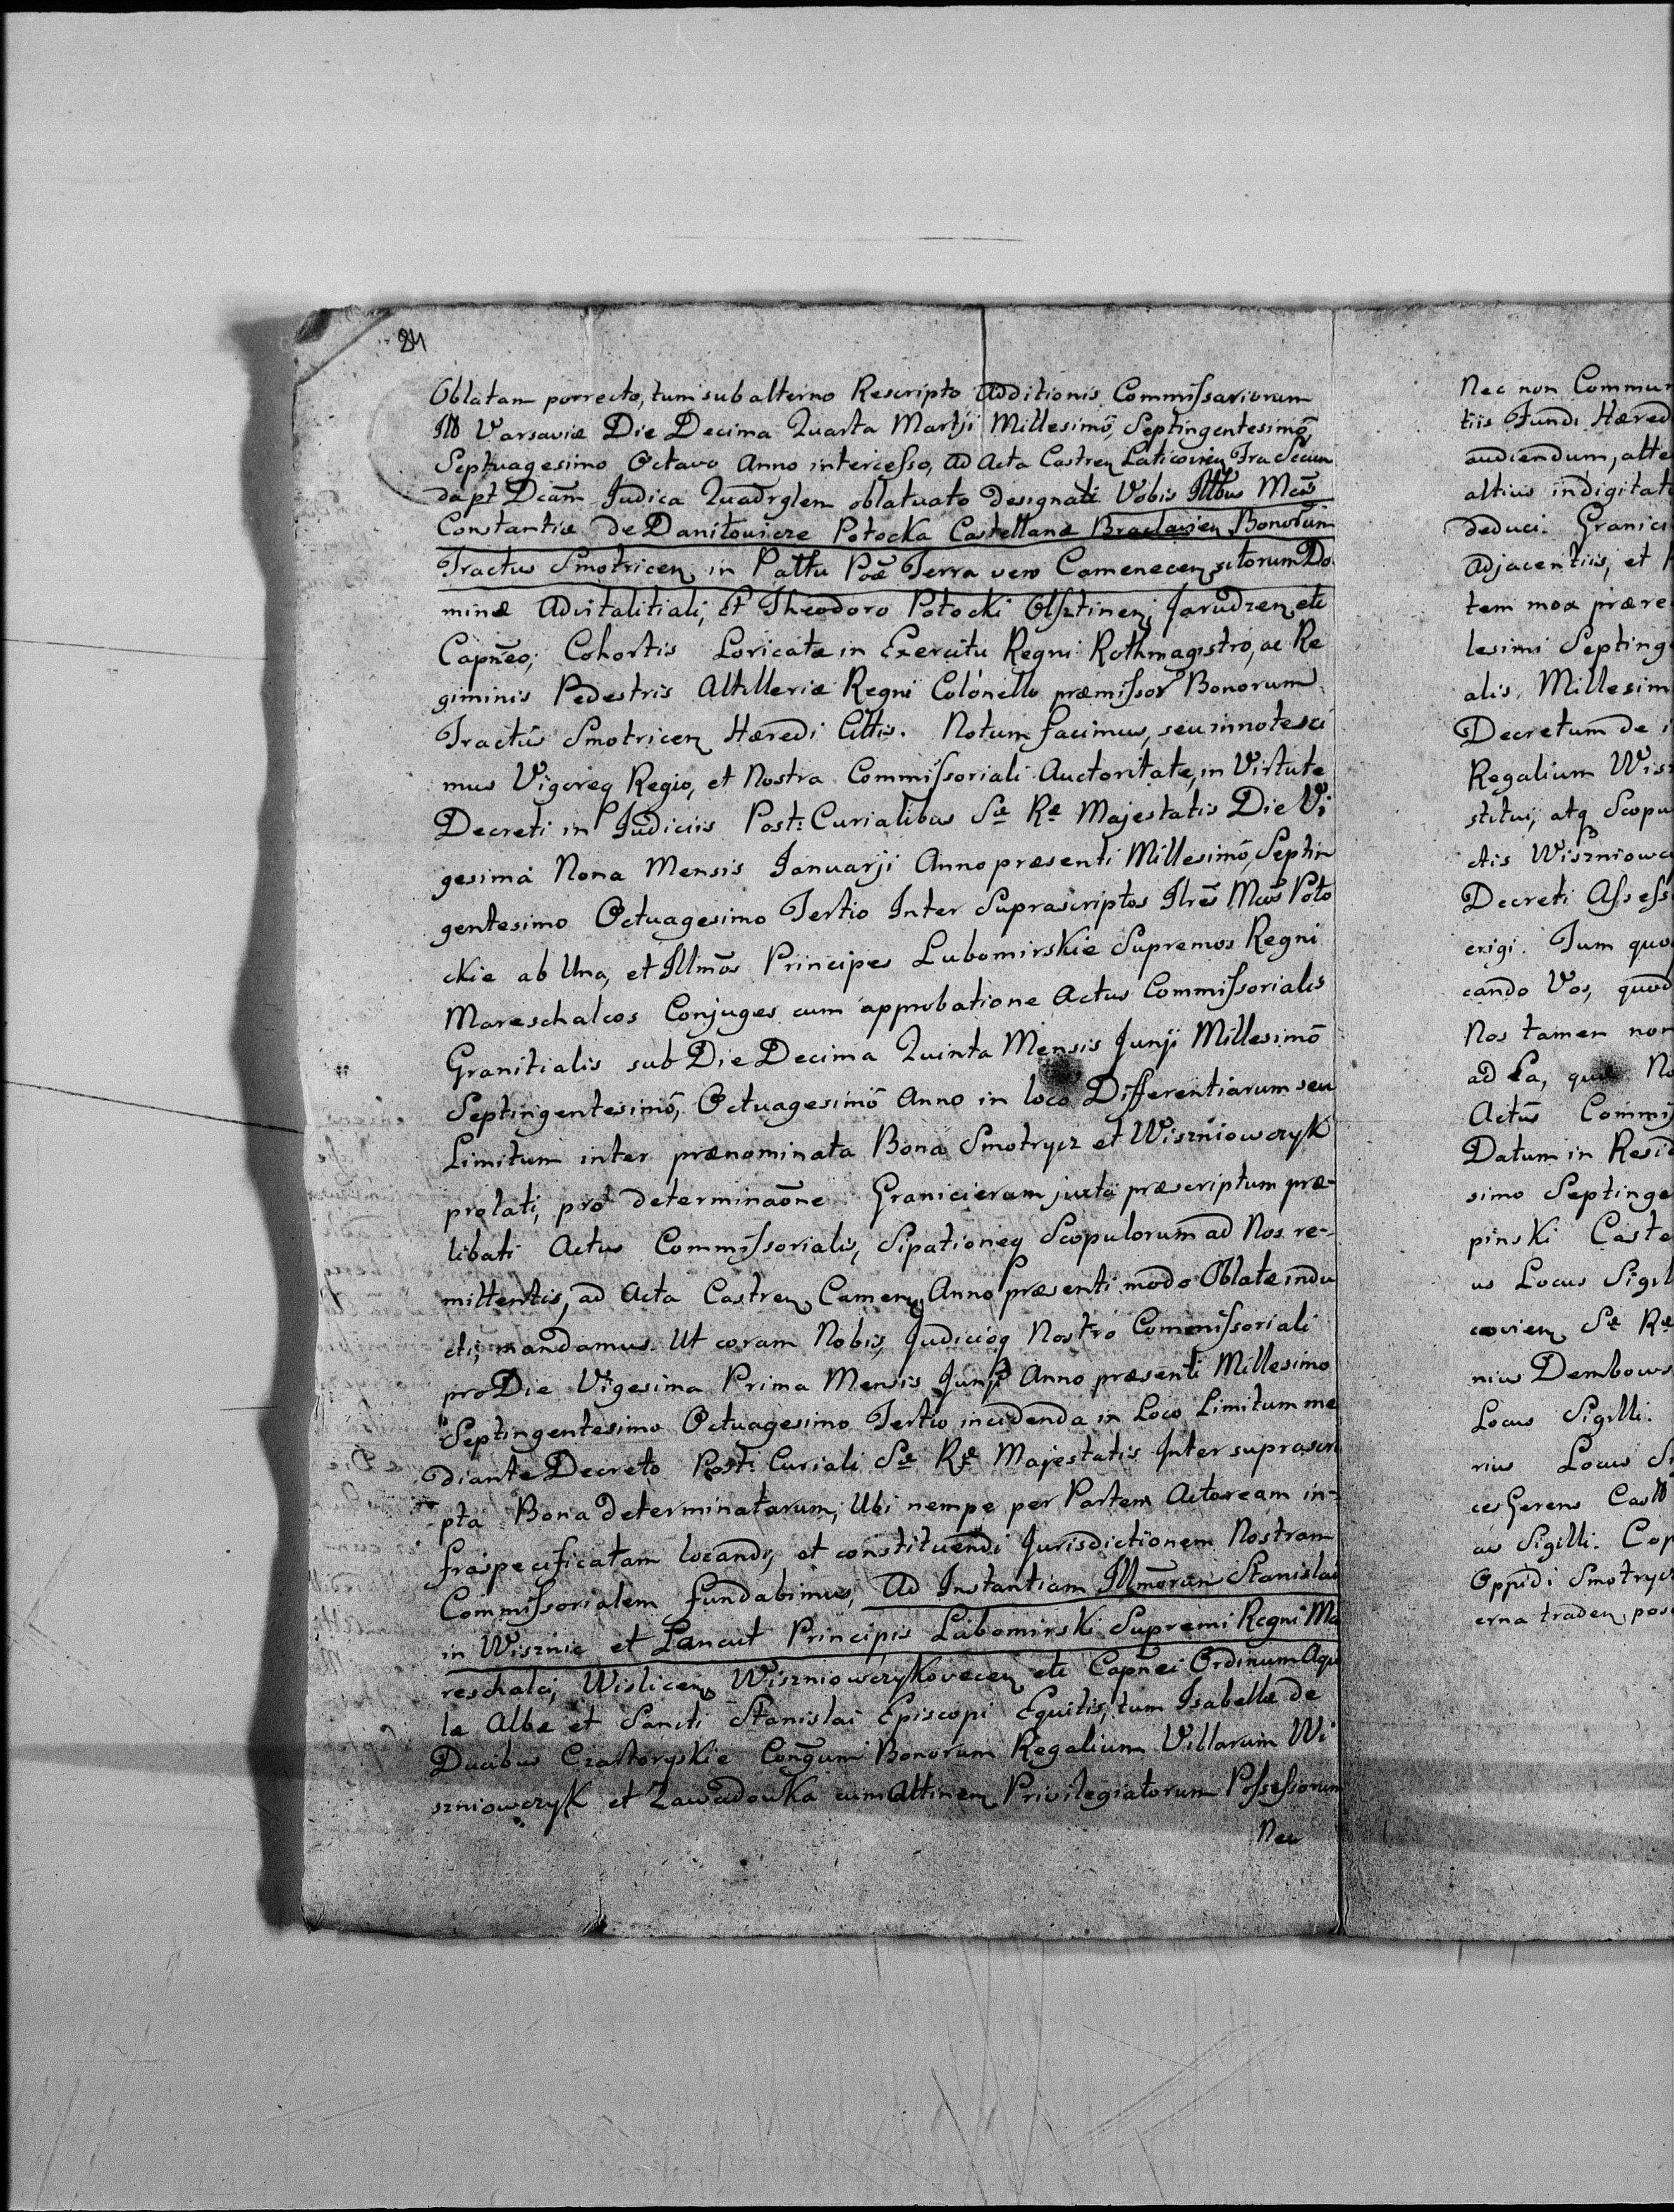 84
Oblatam porrecto, tum sub alterno Rescripto Additionis Commissariorum
Varsaviæ Die Decima Quarta Martji Millesimō, Septingentesimō,
Septuagesimo Octavo Anno intercesso, ad Acta Castren Laticovien Fra Secun
da pt Dcām Judica Quadrglem oblatuato designati Vobis Illbus Mcis
Constantiæ de Daniłowicze Potocka Castellanæ Braclavien Bonorum
Tractus Smotricen in Pallu Poæ Terra vero Camenecen sitorum Do
minæ Advitalitiali, et Theodoro Potocki Olsztinen, Jarudzen etc
Capnēo, Cohortis Loricatæ in Exercitu Regni Rothmagistro, ac Re
giminis Pedestris Altilleriæ Regni Colonello præmissor Bonorum
Tractūs Smotricen Hæredi Cittis. Notum facimus, seu innotesci
mus Vigoreq Regio, et Nostra Commissoriali Auctoritate, in Virtute
Decreti in Judiciis Post: Curialibus Sæ Ræ Majestatis Die Vi
gesima Nona Mensis Januarji Anno præsenti Millesimō, Septin
gentesimo Octuagesimo Tertio Inter Suprascriptos Ilres Mcos Poto
ckie ab Una, et Illmōs Principes Lubomirskie Supremos Regni
Mareschalcos Conjuges cum approbatione Actus Commissorialis
Granitialis sub Die Decima Quinta Mensis Junji Millesimō
Septingentesimō, Octuagesimō Anno in loco Differentiarum seu
Limitum inter prænominata Bona Smotrycz et Wiszniowczyk
prolati, pro determinaōne Granicieram juxta præscriptum præ-
libati Actus Commissorialis, Sipationeq Scopulorum ad Nos re-
mittentis, ad Acta Castren Camen Anno præsenti modo Oblatæ indu
cti, mandamus. Ut coram Nobis, Judicioq Nostro Commissoriali
pro Die Vigesima Prima Mensis Junji Anno præsenti Millesimo
Septingentesimo Octuagesimo Tertio incidenda in Loco Limitum me
diante Decreto Post: Curiali Sæ Ræ Majestatis Inter suprascri
pta Bona determinatarum, Ubi nempe per Partem Actoream in-
fraspecificatam locandi, et constituendi Jurisdictionem Nostram
Commissorialem fundabimus, Ad Instantiam Illmōrum Stanislai
in Wisznic et Łancut Principis Lubomirski Supremi Regni Ma
reschalci, Wislicen, Wiszniowczykovecen etc Capnei Ordinum Aqui
læ Albæ et Sancti Stanislai Episcopi Equitis, tum Isabellæ de
Ducibus Czartoryskie Congum Bonorum Regalium Villarum Wi
szniowczyk et Zawadowka cum Attinen Privilegiatorum Possessorum
Nec
Nec non Commun
tiis Fundi Hæred
audiendum, atte
altius indigitat
deduci. Granici
Adjacentiis, et
tem mox prære
lesimi Septing
alis. Millesim
Decretum de i
Regalium Wis
stitui, atq Scopu
ctis Wiszniowc
Decreti Assess
erigi. Tum quo
cando Vos, quod
Nos tamen non
ad Ea, quæ No
Actūs Commis
Datum in Resid
simo Septinge
pinski Caste
us Locus Sigil
covien Sæ Ræ
nius Dembows
Locus Sigilli.
rius Locus Si
ces Gerens Cast
us Sigilli. Cop
Oppidi Smotrycz
erna traden, pos